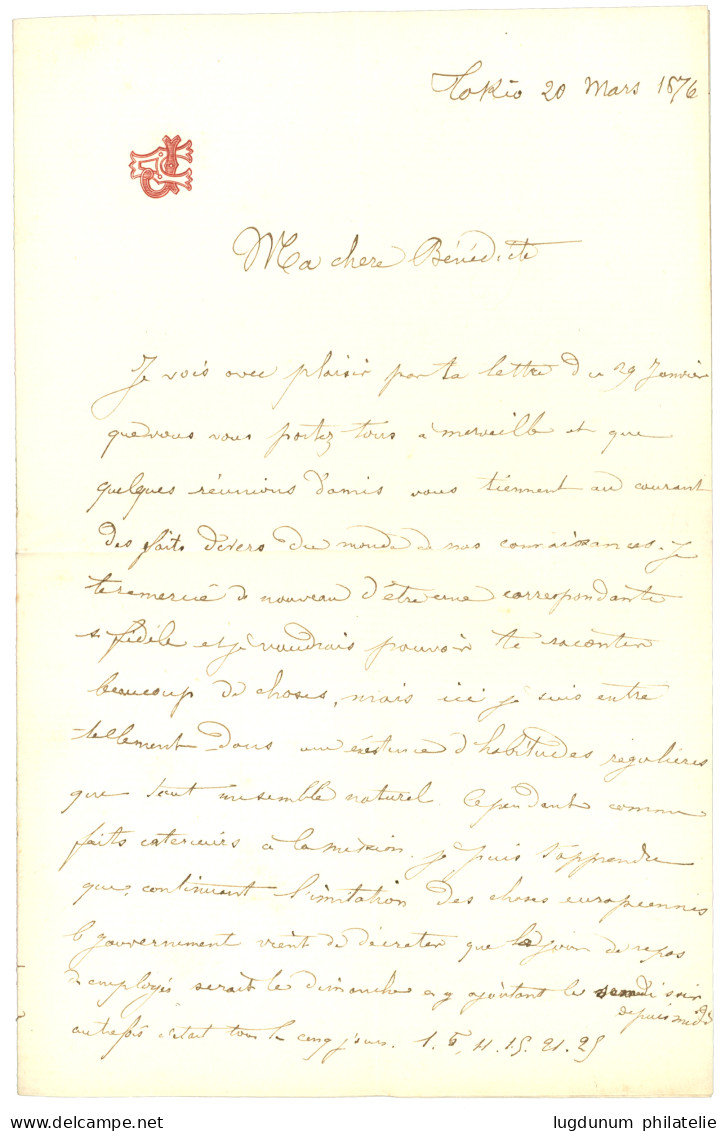 Tokio 20 Mars 1876
Ma chere Bénédicte
Je vois avec plaisir par ta lettre du 29 Janvier
que vous vous portez tous à merveille et que
quelques réunions d'amis vous tiennent au courant
des faits divers du monde de nos connaissances. Je
te remercie de nouveau d'être une correspondante
si fidèle et je voudrais pouvoir te raconter
beaucoup de choses, mais ici je suis entré
tellement dans une existence d'habitudes régulières
que tout me semble naturel. Cependant comme
faits exterieurs à la mission je puis t'apprendre
que, continuant l'imitation des choses européennes
le gouvernement vient de décréter que le jour de repos
des employés serait le dimanche en y ajoutant le samedi soir
depuis midi
autrefois c'était tous les cinq jours. 1. 6. 11. 15. 21. 25
lugdunum philatelie